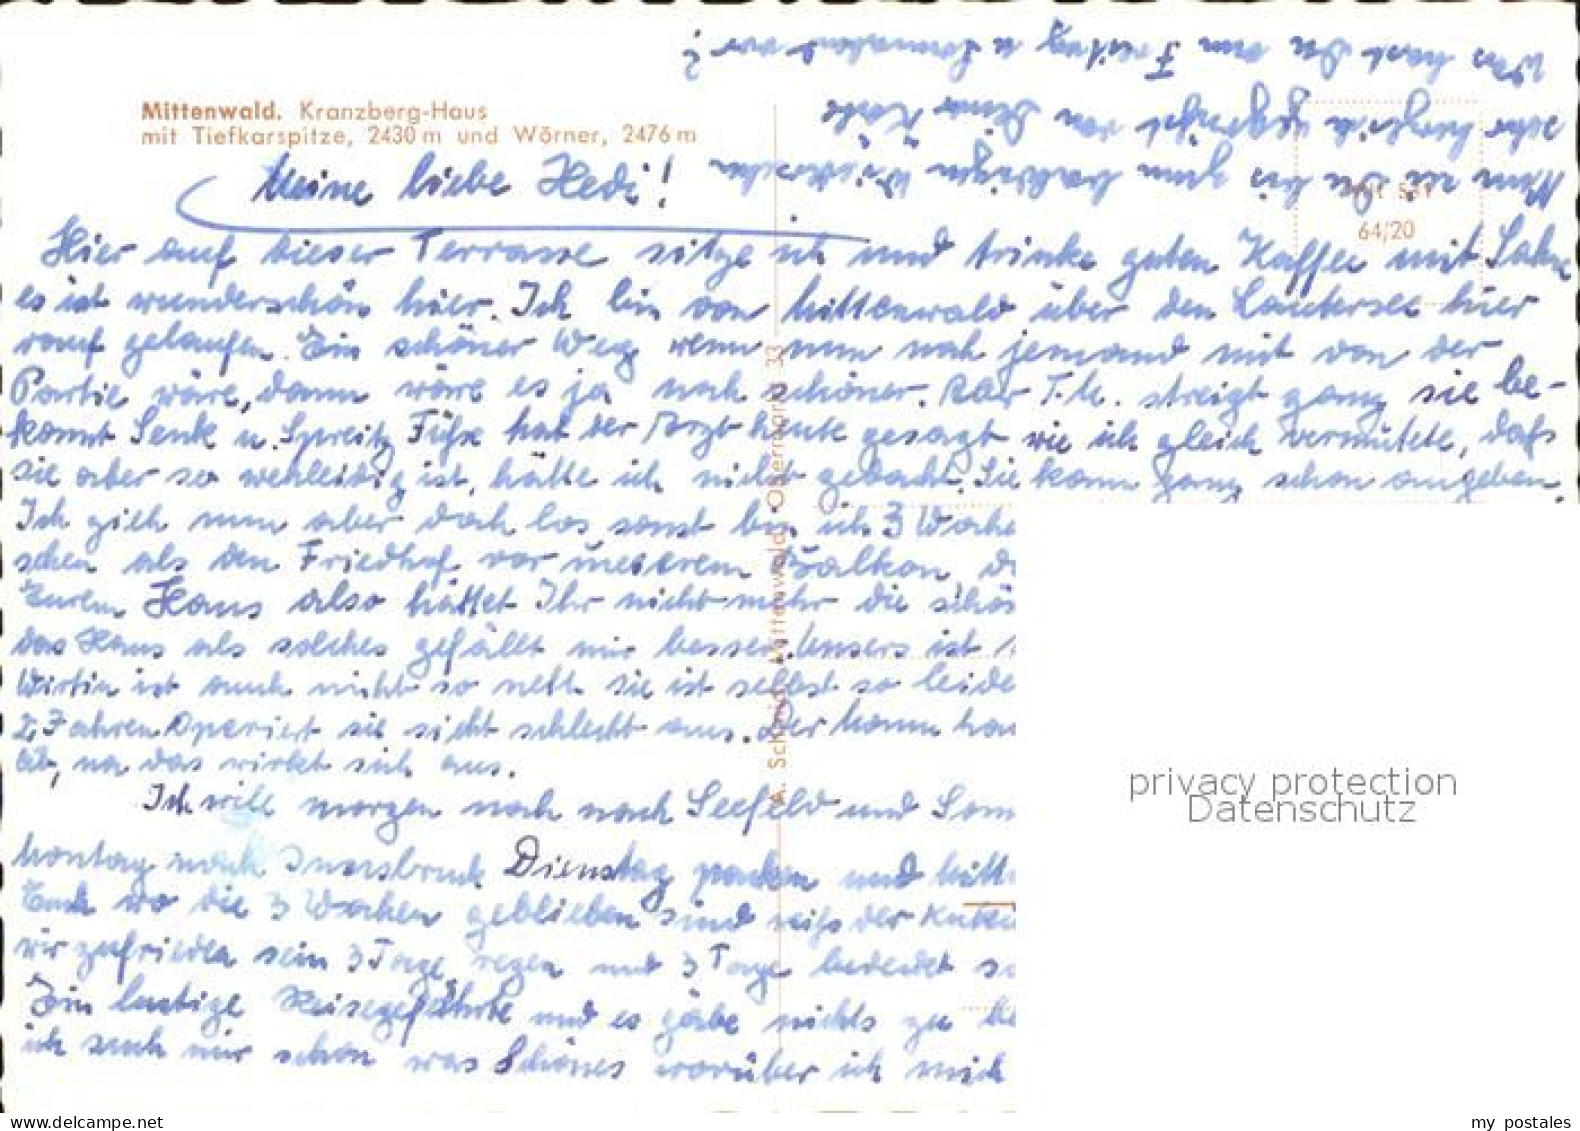 Mittenwald. Kranzberg-Haus
mit Tiefkarspitze, 2430 m und Wörner, 2476 m
Meine liebe Hedi!
Hier auf dieser Terrasse sitze ich und trinke guten Kaffee mit Sahne
es ist wunderschön hier. Ich bin von Mittenwald über den Lautersee hier
rauf gelaufen. Ein schöner Weg wenn nun noch jemand mit von der
Partie wäre, dann wäre es ja noch schöner. Aber T.M. streigt ganz sie be-
kommt Senk u. Spreitz Füße hat der Arzt heute gesagt wie ich gleich vermutete, daß
sie aber so wehleidig ist, hätte ich nicht gedacht. Sie kann ganz schön angeben.
Ich zieh nun aber doch los sonst bin ich 3 Woche
sehen als den Friedhof vor unserem Balkon, d
Eurem Haus also hättet Ihr nicht mehr die schö
das Haus als solches gefällt mir besser. Unsers ist
Wirtin ist auch nicht so nett. Sie ist selbst so leide
2 Jahren operiert sie sieht schlecht aus. Der Mann
ab, na das wirkt sich aus.
Ich will morgen noch nach Seefeld und Sonn
Montag nach Innsbruck Dienstag packen und Mitt
Euch wo die 3 Wochen geblieben sind reißt der
wir zufrieden sein 3 Tage regen und 3 Tage bedeckt
Ein lustige Reisegefährte und es gäbe nichts zu
ich such mir schon was Schönes worüber ich mich
Nun sei Du bis zum baldigen Wiedersehen
sehr herzlich gegrüßt von Deiner Käte
Wo hast Du am Freitag u Sonnabend war?
64/20
A. Schmid, Mittenwald, Obermarkt 33
privacy protection
Datenschutz
my postales